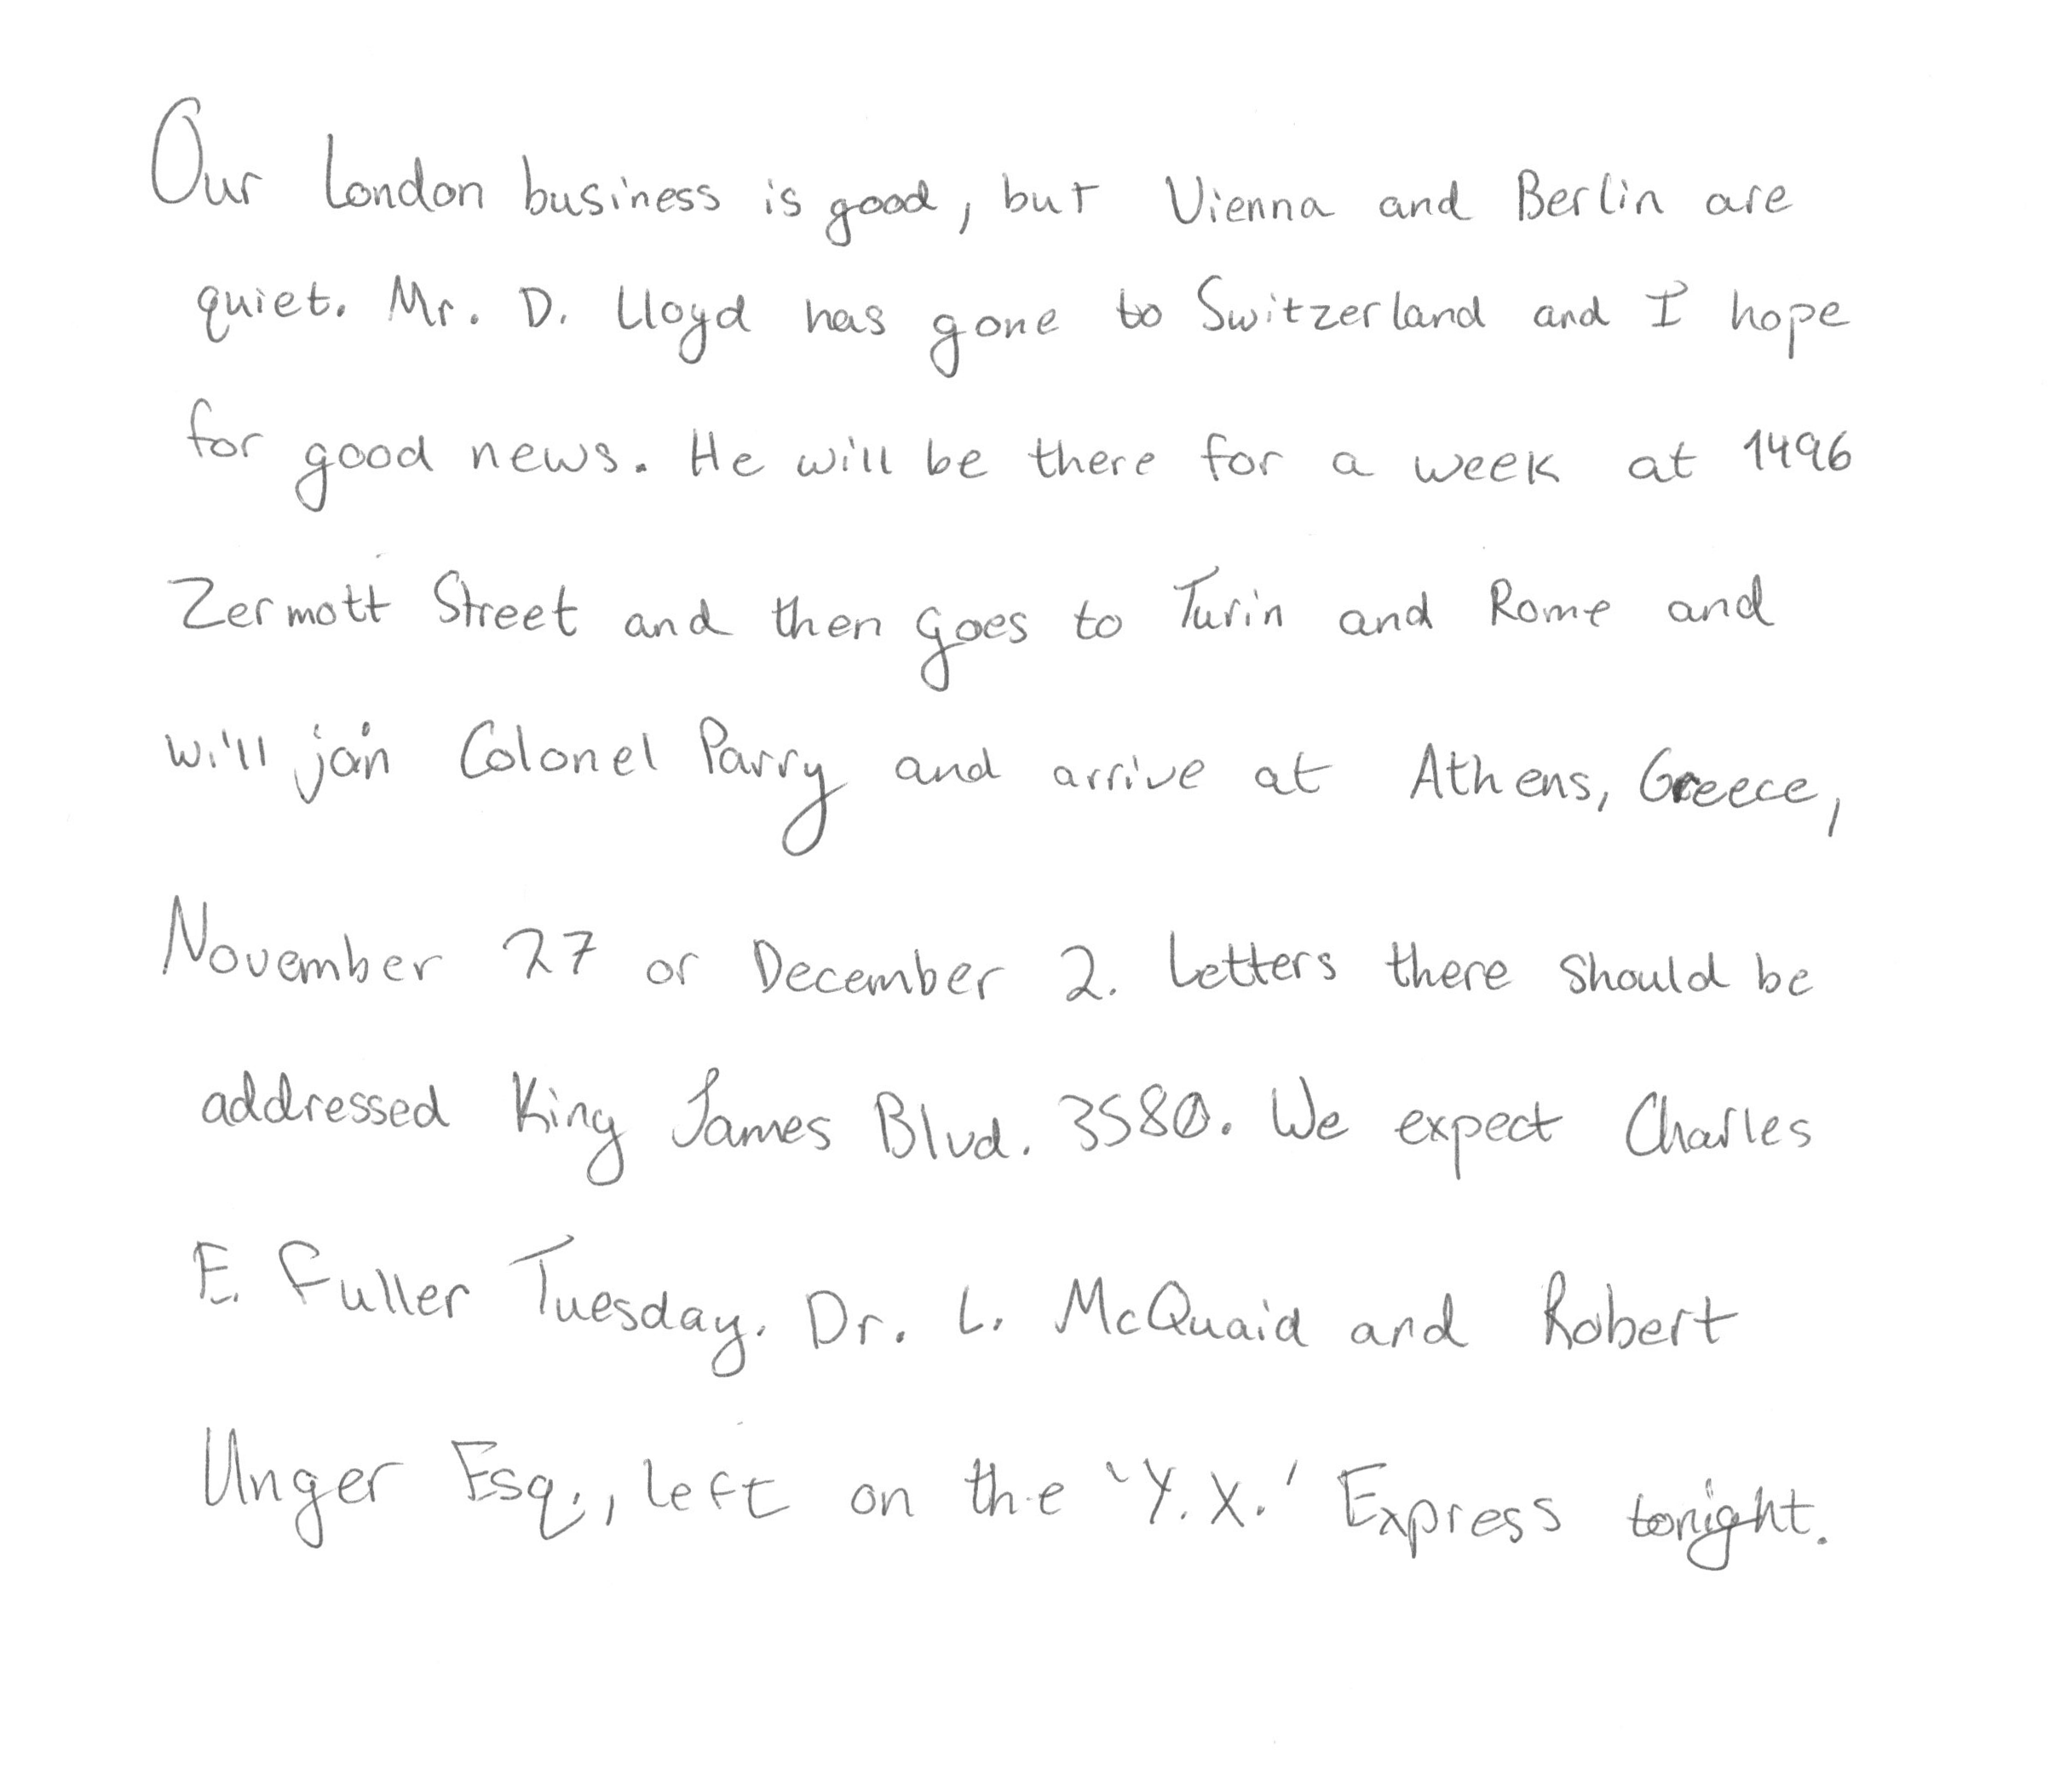 Our London business is good, but Vienna and Berlin are
quiet. Mr. D. Lloyd has gone to Switzerland and I hope
for good news. He will be there for a week at 1496
Zermott Street and then goes to Turin and Rome and
will join Colonel Parry and arrive at Athens, Greece,
November 27 or December 2. Letters there should be
addressed King James Blvd. 3580. We expect Charles
E. Fuller Tuesday. Dr. L. McQuaid and Robert
Unger Esq., left on the 'Y.X.' Express tonight.